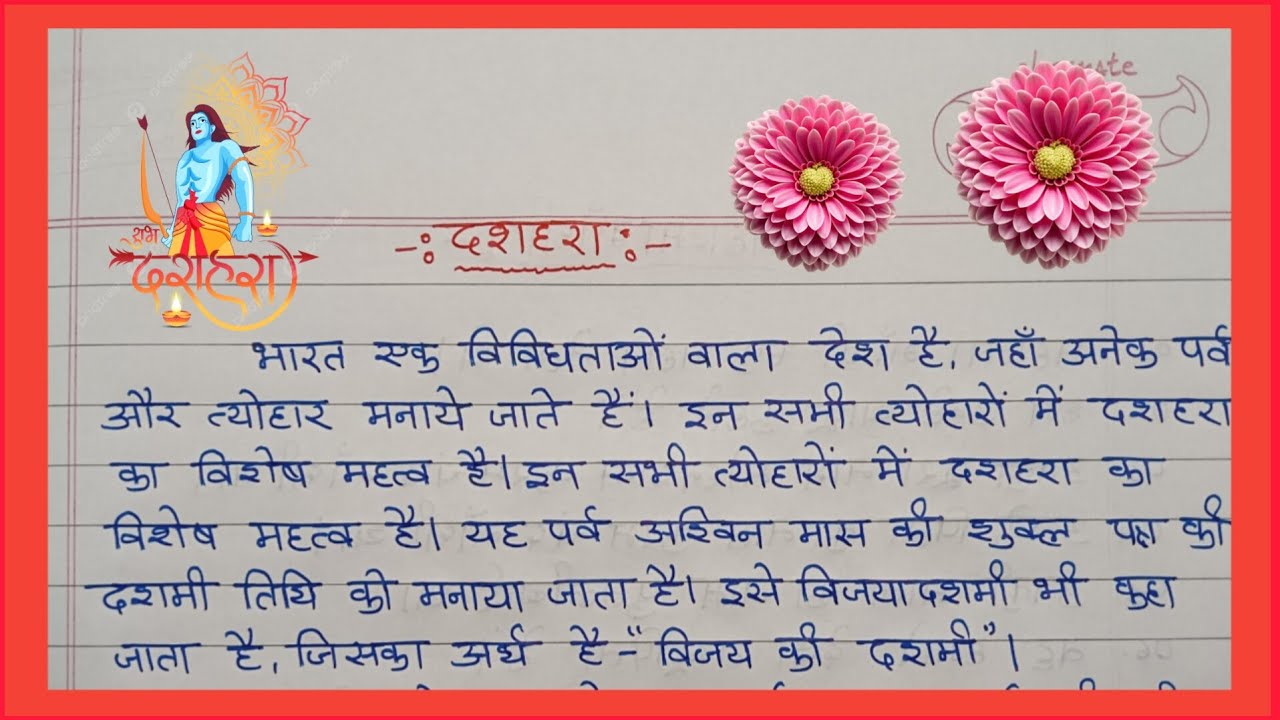 शुभ
दशहरा
-: दशहरा :-
भारत एक विविधताओं वाला देश है, जहाँ अनेक पर्व
और त्योहार मनाये जाते हैं। इन सभी त्योहारों में दशहरा
का विशेष महत्व है। इन सभी त्योहारों में दशहरा का
विशेष महत्व है। यह पर्व अश्विन मास की शुक्ल पक्ष की
दशमी तिथि को मनाया जाता है। इसे विजयादशमी भी कहा
जाता है, जिसका अर्थ है - "विजय की दशमी"।